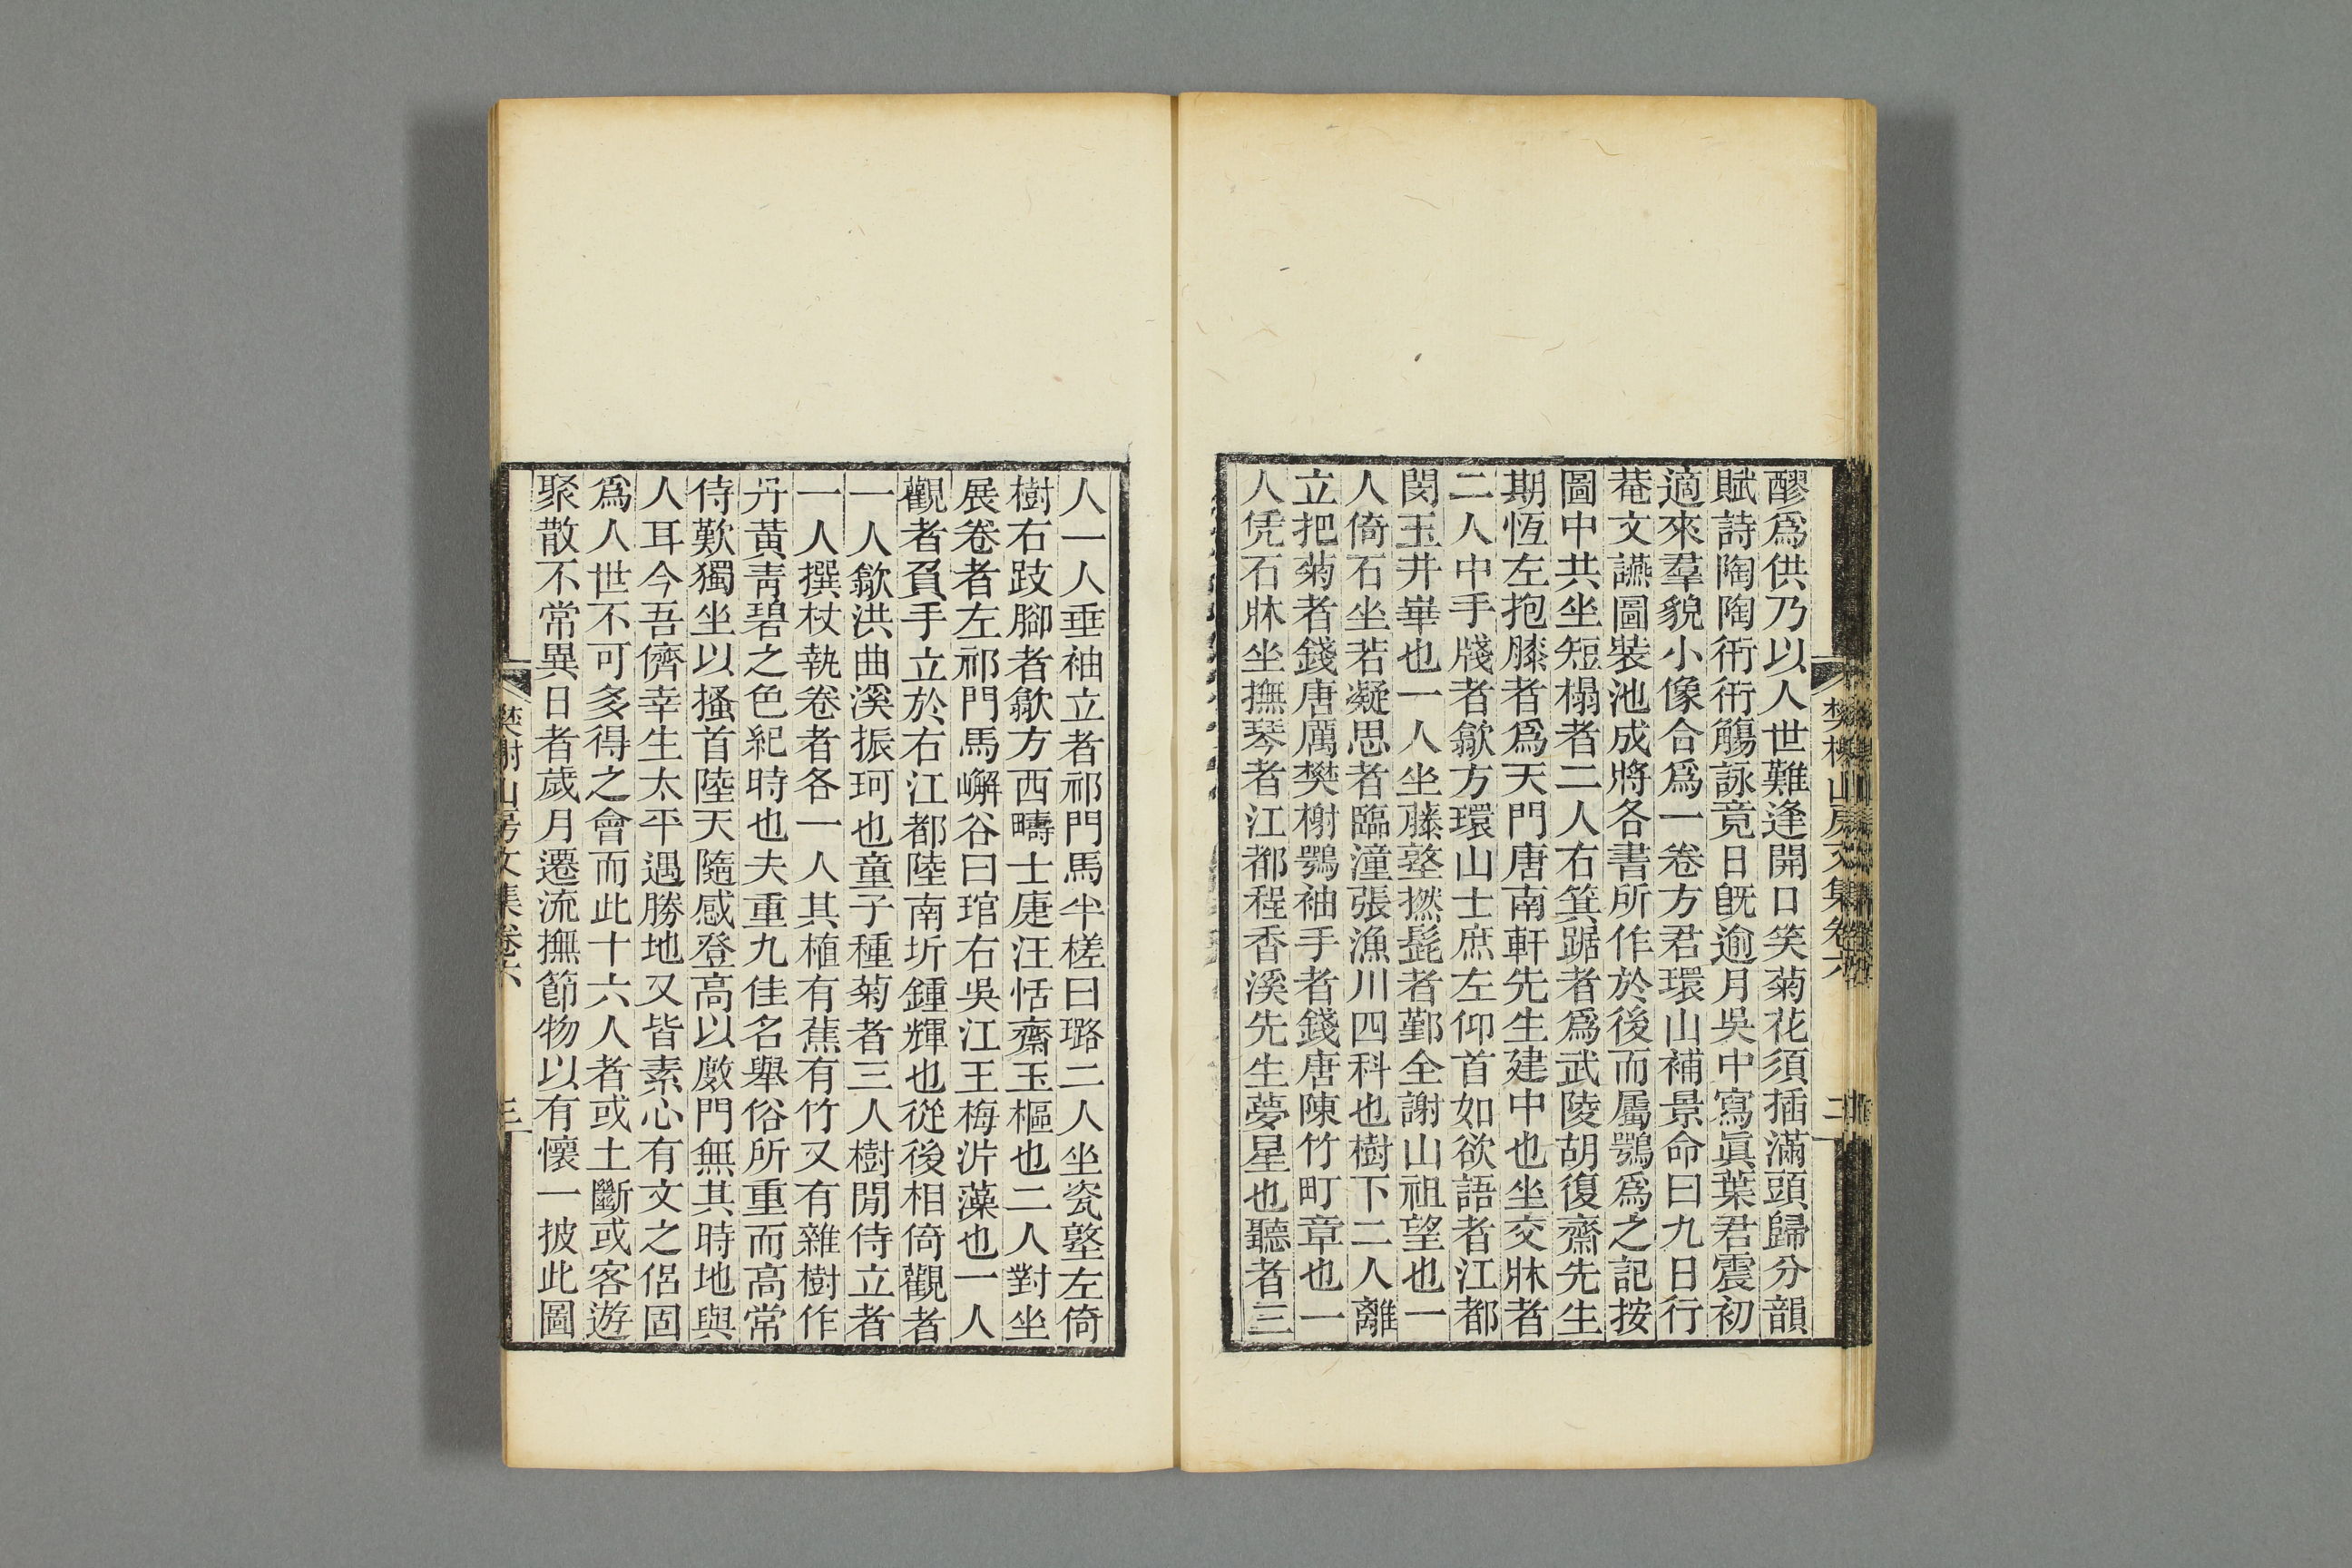 醪爲供乃以人世難逢開口笑菊花須插滿頭歸分韻
賦詩陶陶衎衎觴詠竟日旣逾月吳中寫眞葉君震初
適來羣貌小像合爲一卷方君環山補景命曰九日行
菴文讌圖裝池成將各書所作於後而屬鶚爲之記按
圖中共坐短榻者二人右箕踞者爲武陵胡復齋先生
期恆左抱膝者爲天門唐南軒先生建中也坐交牀者
二人中手牋者歙方環山士庶左仰首如欲語者江都
閔玉井崋也一人坐藤墪撚髭者鄞全謝山祖望也一
人倚石坐若凝思者臨潼張漁川四科也樹下二人離
立把菊者錢唐厲樊榭鶚袖手者錢唐陳竹町章也一
人凭石牀坐撫琴者江都程香溪先生夢星也聽者三
樊榭山房文集卷六
二
人一人垂袖立者祁門馬半槎曰璐二人坐瓷墪左倚
樹右跂腳者歙方西疇士庱汪恬齋玉樞也二人對坐
展卷者左祁門馬嶰谷曰琯右吳江王梅沜藻也一人
觀者負手立於右江都陸南圻鍾輝也從後相倚觀者
一人歙洪曲溪振珂也童子種菊者三人樹閒侍立者
一人撰杖執卷者各一人其植有蕉有竹又有雜樹作
丹黃靑碧之色紀時也夫重九佳名舉俗所重而高常
侍歎獨坐以搔首陸天隨感登高以廞門無其時地與
人耳今吾儕幸生太平遇勝地又皆素心有文之侶固
爲人世不可多得之會而此十六人者或土斷或客遊
聚散不常異日者歲月遷流撫節物以有懷一披此圖
樊榭山房文集卷六
三